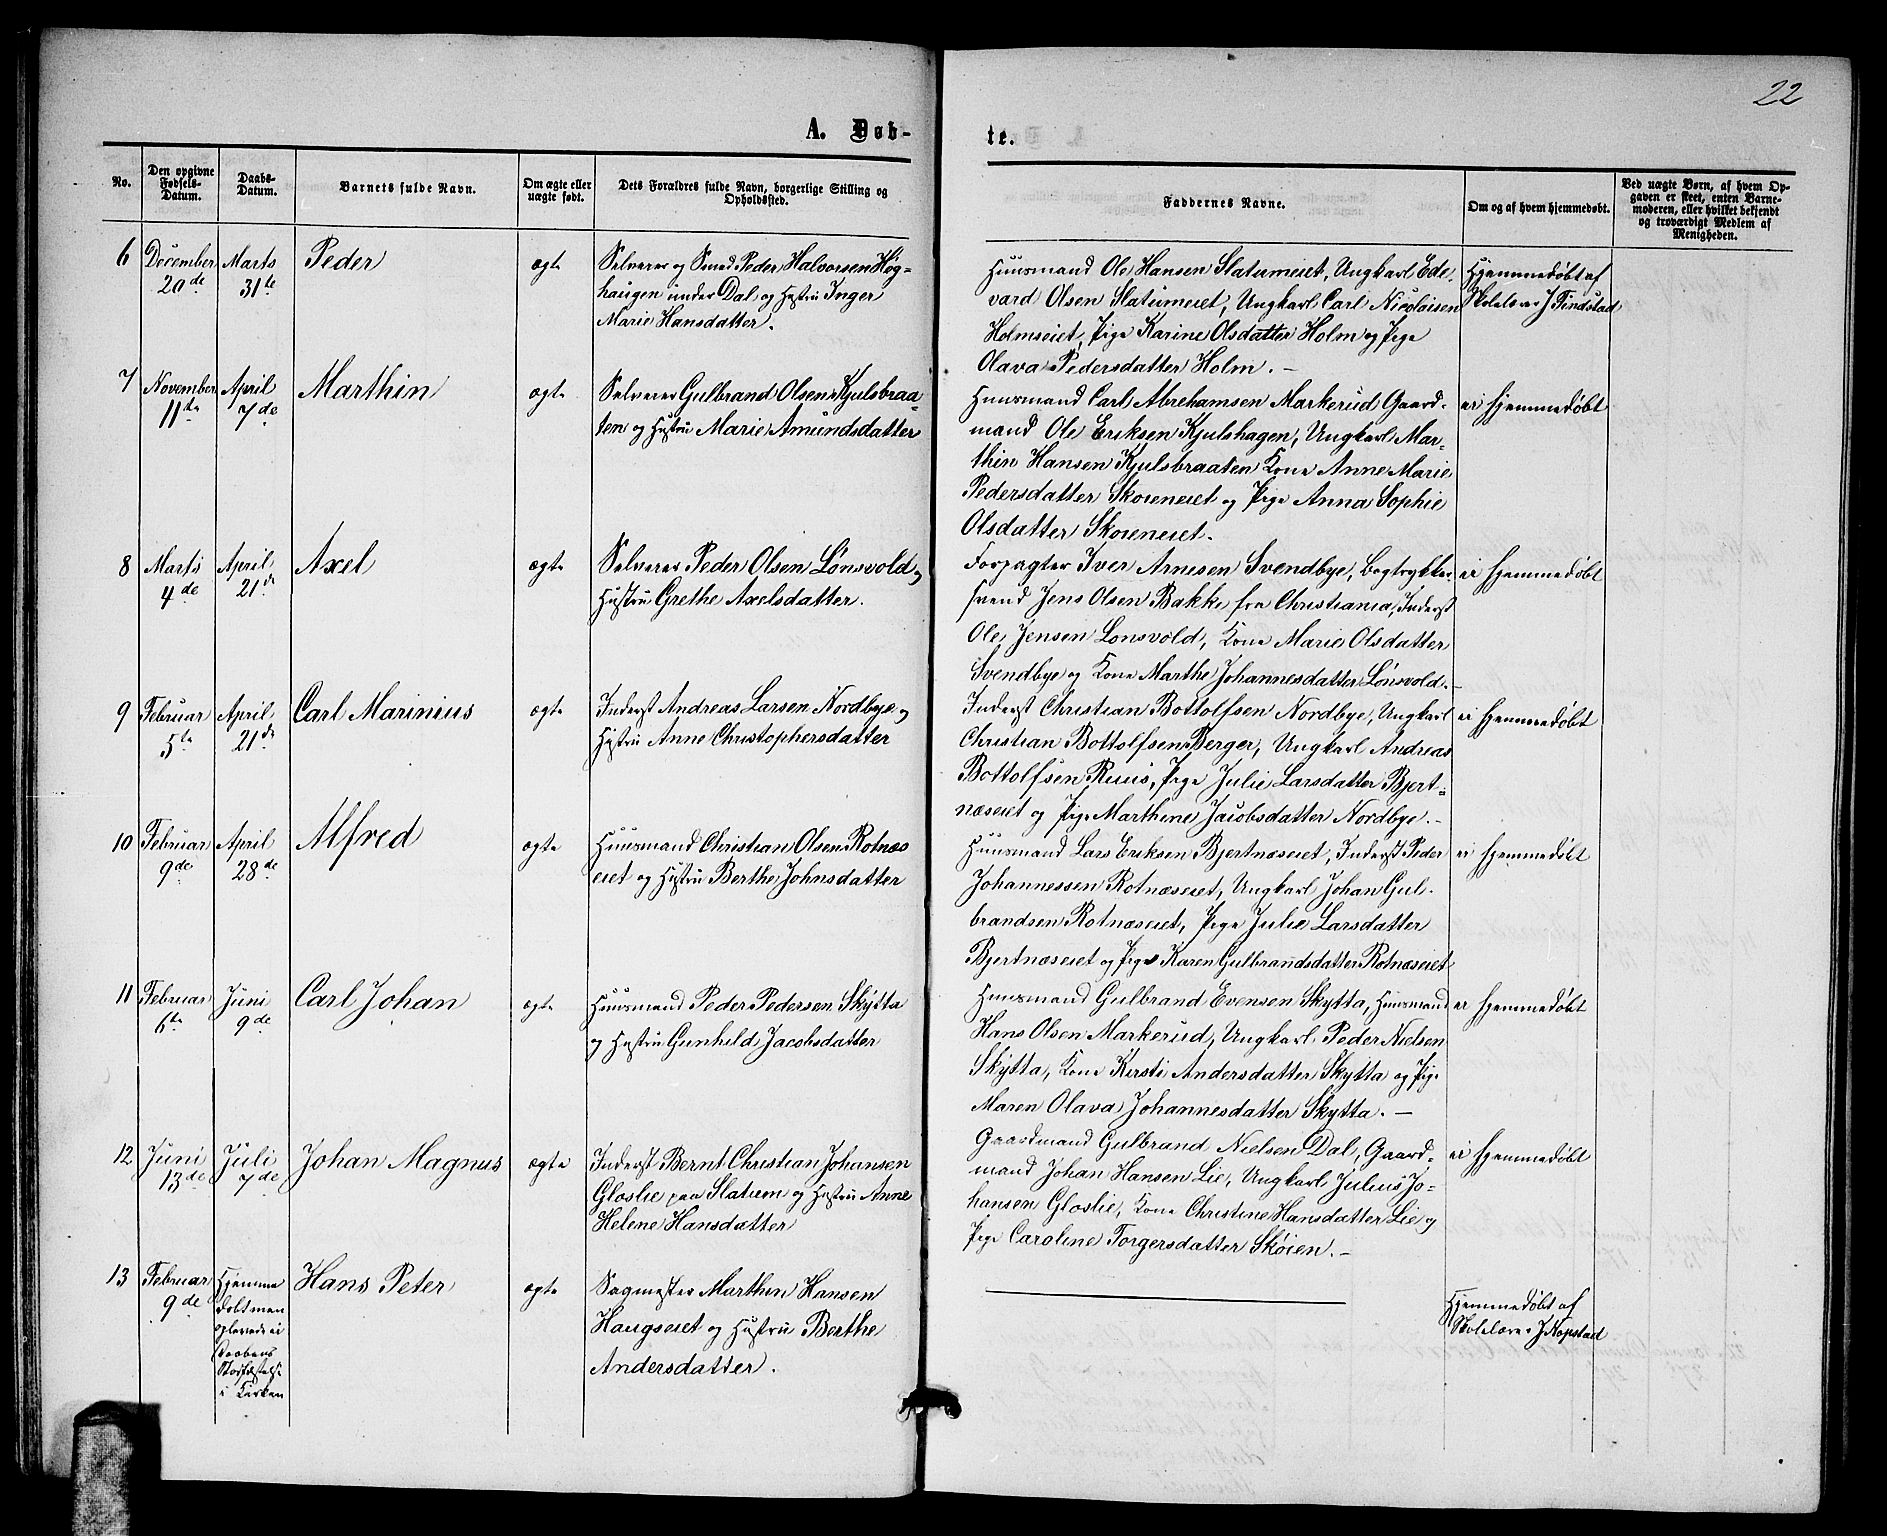 22
A. Døb-
te.
No.
Den opgivne Fødsels-Datum.
Daabs-Datum.
Barnets fulde Navn.
Om ægte eller uægte født.
Dets Forældres fulde Navn, borgerlige Stilling og Opholdssted.
Faddernes Navne.
Om og af hvem hjemmedøbt.
Ved uægte Børn, af hvem Opgaven er skeet, enten Barnemoderen, eller hvilket bekjendt og troværdigt Medlem af Menigheden.
6
December 20de
Marts 31te
Peder
ægte
Selveier og Smed Peder Halvorsen Høg-
haugen under Dal og Hustru Inger
Marie Hansdatter.
Huusmand Ole Hansen Slatumeiet, Ungkarl Ed-
vard Olsen Slatumeiet, Ungkarl Carl Nicolaisen
Holmseiet, Pige Karine Olsdatter Holm og Pige
Olava Pedersdatter Holm. —
Hjemmedøbt af
Skolelærer J Tindstad
7
November 11te
April 7de
Marthin
ægte
Selveier Gulbrand Olsen Kjulsbraa-
ten og Hustru Marie Amundsdatter
Huusmand Carl Abrehamsen Markerud Gaard-
mand Ole Eriksen Kjulshagen, Ungkarl Mar-
thin Hansen Kjulsbraaten Kone Anne Marie
Pedersdatter Skoieneiet og Pige Anna Sophie
Olsdatter Skoieneiet.
ei hjemmedøbt
8
Marts 4de
April 21de
Axel
ægte
Selveier Peder Olsen Lønsvold og
Hustru Grethe Axelsdatter.
Forpagter Iver Arnesen Svendbye, Bogtrykker-
svend Jens Olsen Bakke fra Christiania, Inderst
Ole Jensen Lønsvold, Kone Marie Olsdatter
Svendbye og Kone Marthe Johannesdatter Lønsvold. —
ei hjemmedøbt
9
Februar 5te
April 21de
Carl Marinius
ægte
Inderst Andreas Larsen Nordbye og
Hustru Anne Christophersdatter
Inderst Christian Bottolfsen Nordbye, Ungkarl
Christian Bottolfsen Berger, Ungkarl Andreas
Bottolfsen Ruus, Pige Julie Larsdatter Bjert-
næseiet og Pige Marthine Jacobsdatter Nordbye. —
ei hjemmedøbt
10
Februar 9de
April 28de
Alfred
ægte
Huusmand Christian Olsen Rotnæs
eiet og Hustru Berthe Johnsdatter
Huusmand Lars Eriksen Bjertnæseiet, Inderst Peder
Johannessen Rotnæseiet, Ungkarl Johan Gul-
brandsen Rotnæseiet, Pige Julie Larsdatter
Bjertnæseiet og Pige Karen Gulbrandsdatter Rotnæseiet
ei hjemmedøbt
11
Februar 6te
Juni 9de
Carl Johan
ægte
Huusmand Peder Pedersen Skytta
og Hustru Gunhild Jacobsdatter
Huusmand Gulbrand Evensen Skytta, Huusmand
Hans Olsen Markerud, Ungkarl Peder Nielsen
Skytta, Kone Kirsti Andersdatter Skytta og Pige
Maren Olava Johannesdatter Skytta. —
ei hjemmedøbt
12
Juni 13de
Juli 7de
Johan Magnus
ægte
Inderst Bernt Christian Johansen
Gloslie paa Slatum og Hustru Anne
Helene Hansdatter
Gaardmand Gulbrand Nielsen Dal, Gaard-
mand Johan Hansen Lie, Ungkarl Julius Jo-
hansen Gloslie, Kone Christine Hansdatter Lie og
Pige Caroline Torgersdatter Skøien. —
ei hjemmedøbt
13
Februar 9de
Hjemme
døbt men
oplevede ei
Daabens
Stadfæstelse
i Kirken
Hans Peter
ægte
Sagmester Marthin Hansen
Haugseiet og Hustru Berthe
Andersdatter.
Hjemmedøbt af
Skolelærer J Nopstad